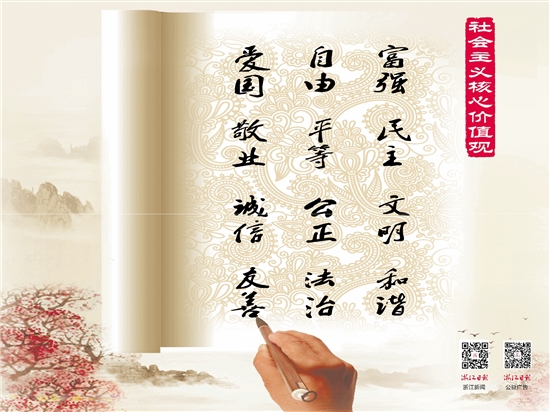 社会主义核心价值观
富强
民主
文明
和谐
自由
平等
公正
法治
爱国
敬业
诚信
友善
浙江日报
浙江新闻
浙江日报
公益广告